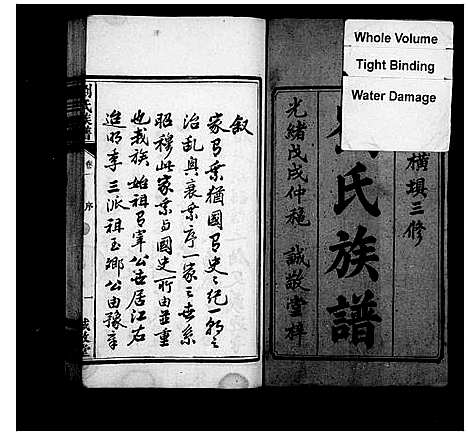 Whole Volume
Tight Binding
Water Damage
橫塤三修
氏族譜
光緒戊戌仲穐 誠敬堂梓
叙
家有乗猶國有史〻紀一朝之
治乱興衰乗序一家之世系
昭穆此家乗與國史所由並重
也我族始祖有寧公世居江右
迨明季三派祖玉鄉公由豫章
劉氏族譜
卷一 序
一
誠敬堂